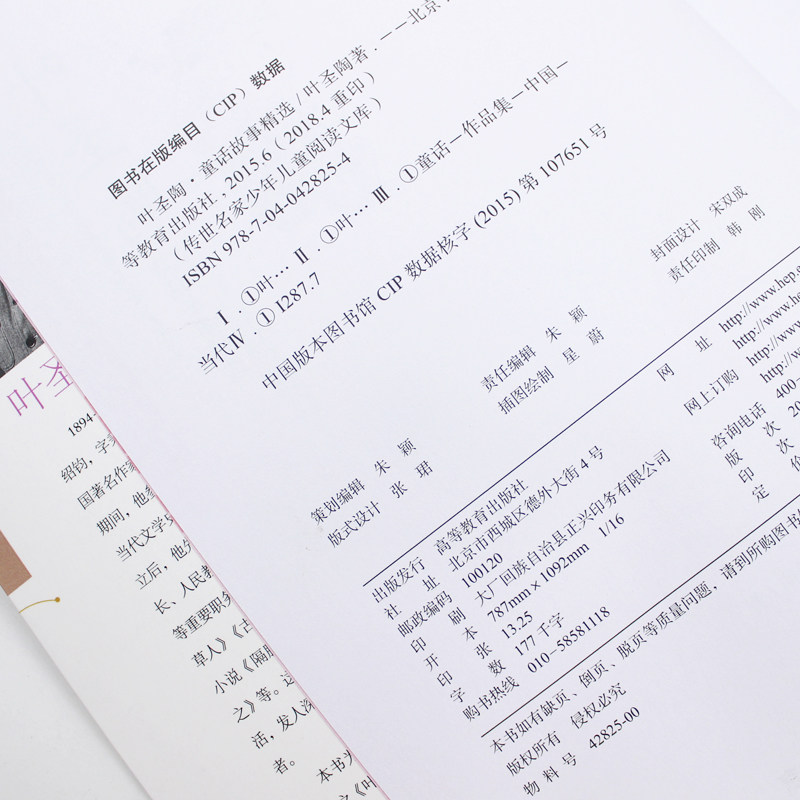 图书在版编目（CIP）数据
叶圣陶·童话故事精选/叶圣陶著.－－北京
等教育出版社，2015.6（2018.4重印）
（传世名家少年儿童阅读文库）
ISBN 978-7-04-042825-4
Ⅰ.①叶… Ⅱ.①叶… Ⅲ.①童话－作品集－中国－
当代Ⅳ.①I287.7
中国版本图书馆CIP数据核字（2015）第107651号
策划编辑 朱 颖
责任编辑 朱 颖
封面设计 宋双成
版式设计 张 珺
插图绘制 星 蔚
责任印制 韩 刚
出版发行 高等教育出版社
社 址 北京市西城区德外大街4号
邮政编码 100120
印 刷 大厂回族自治县正兴印务有限公司
开 本 787mm×1092mm 1/16
印 张 13.25
字 数 177千字
购书热线 010-58581118
网 址 http://www.hep.
http://www.h
网上订购 http://www
http://w
http://
咨询电话 400-
版 次 20
印 次
定 价
本书如有缺页、倒页、脱页等质量问题，请到所购图书
版权所有 侵权必究
物 料 号 42825-00
叶圣
1894-
绍钧，字
国著名作
期间，他
当代文学
立后，他
长、人民教
等重要职务
草人》《古
小说《隔膜
之》等。这
活，发人深
者。
本书为
之《叶